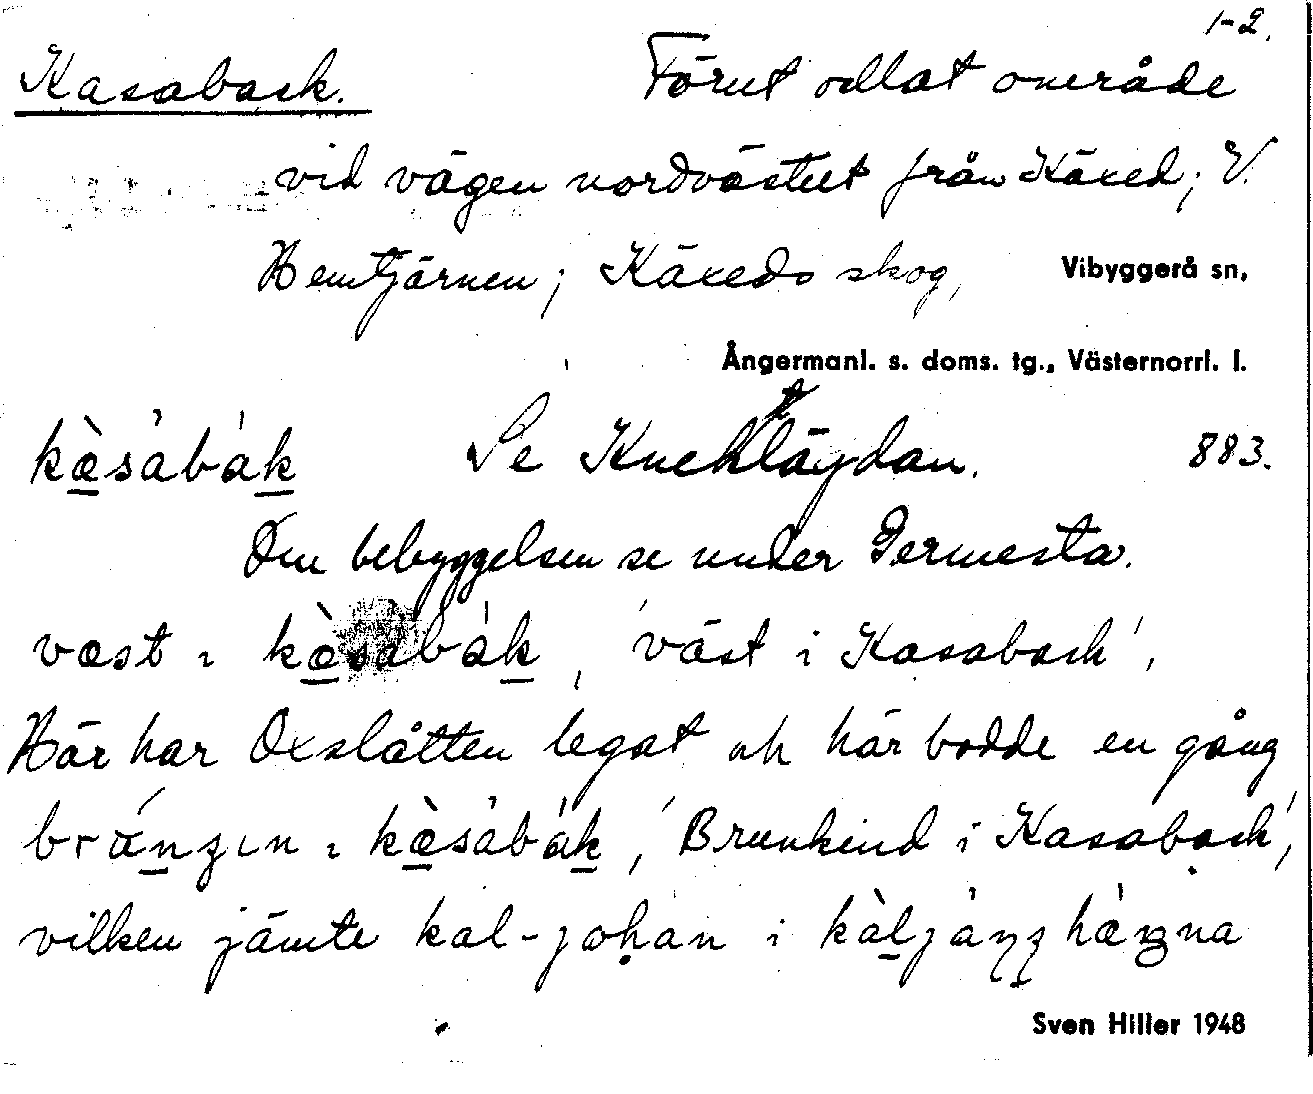 1-2.
Kasaback. Förut odlat område
vid vägen nordväster från Käxed; V.
Hemtjärnen; Käxeds skog,
Vibyggerå sn,
Ångermanl. s. doms. tg., Västernorrl. l.
kæ̀sabák Se Knektläydan. 883.
Om bebyggelsen se under Germesta.
væst ı kæ̀sabák, 'väst i Kasaback',
Här har Oxslåtten legat och här bodde en gång
ı kæ̀sabák, 'Brunkind i Kasaback',
vilken jämte kal-johan i
Sven Hiller 1948